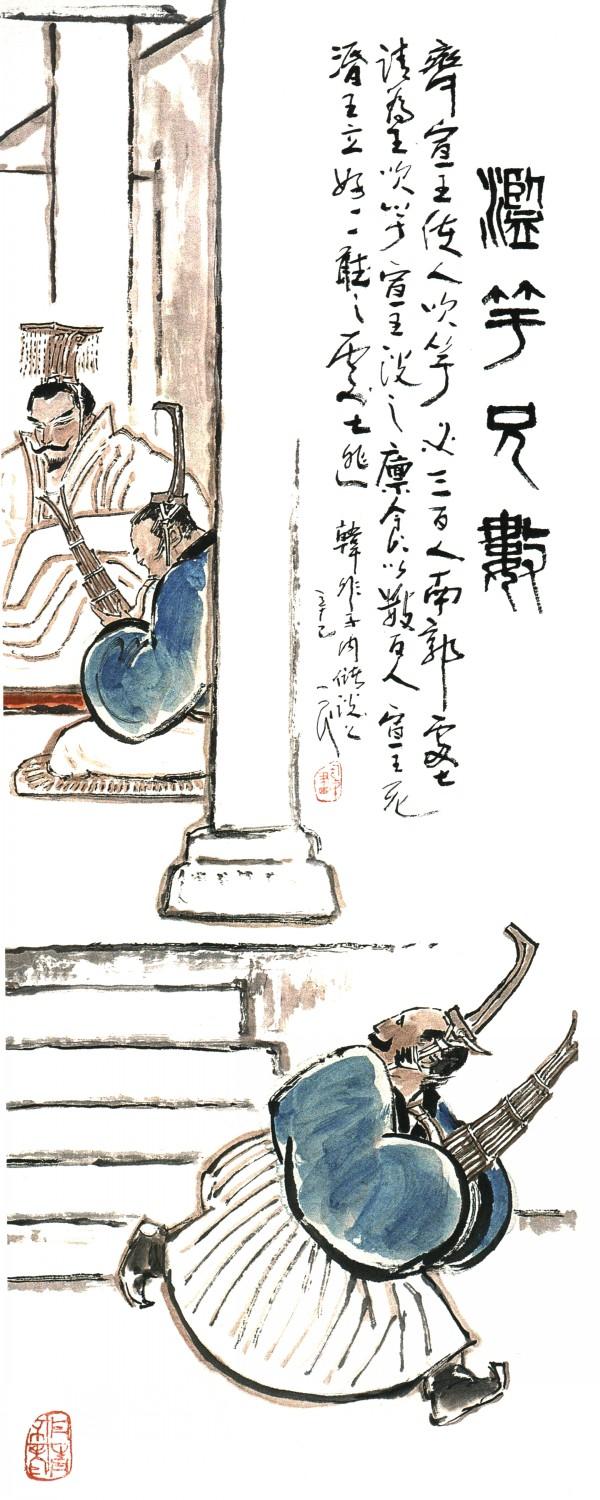 濫竽充數
齊宣王使人吹竽必三百人南郭處士
請為王吹竽宣王說之廩食以數百人宣王死
湣王立好一一聽之處士逃 韓非子內儲說上